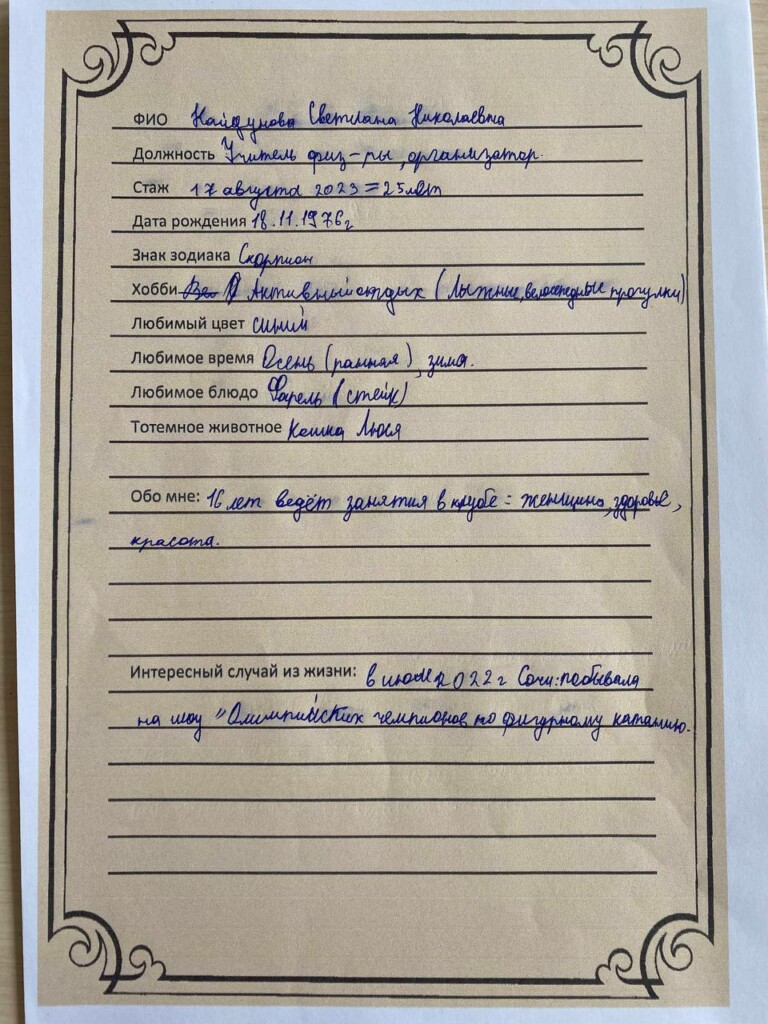 ФИО Найдунова Светлана Николаевна
Должность Учитель физ-ры, организатор.
Стаж 17 августа 2023 = 25 лет
Дата рождения 18.11.1976г
Знак зодиака Скорпион
Хобби Активный отдых (лыжные, велосипедные прогулки)
Любимый цвет синий
Любимое время Осень (ранная), зима.
Любимое блюдо Фарель (стейк)
Тотемное животное кошка Люся
Обо мне: 16 лет ведёт занятия в клубе = женщина, здоровье,
красота.
Интересный случай из жизни: в июле 2022 г Сочи: побывала
на шоу "Олимпийских чемпионов по фигурному катанию.